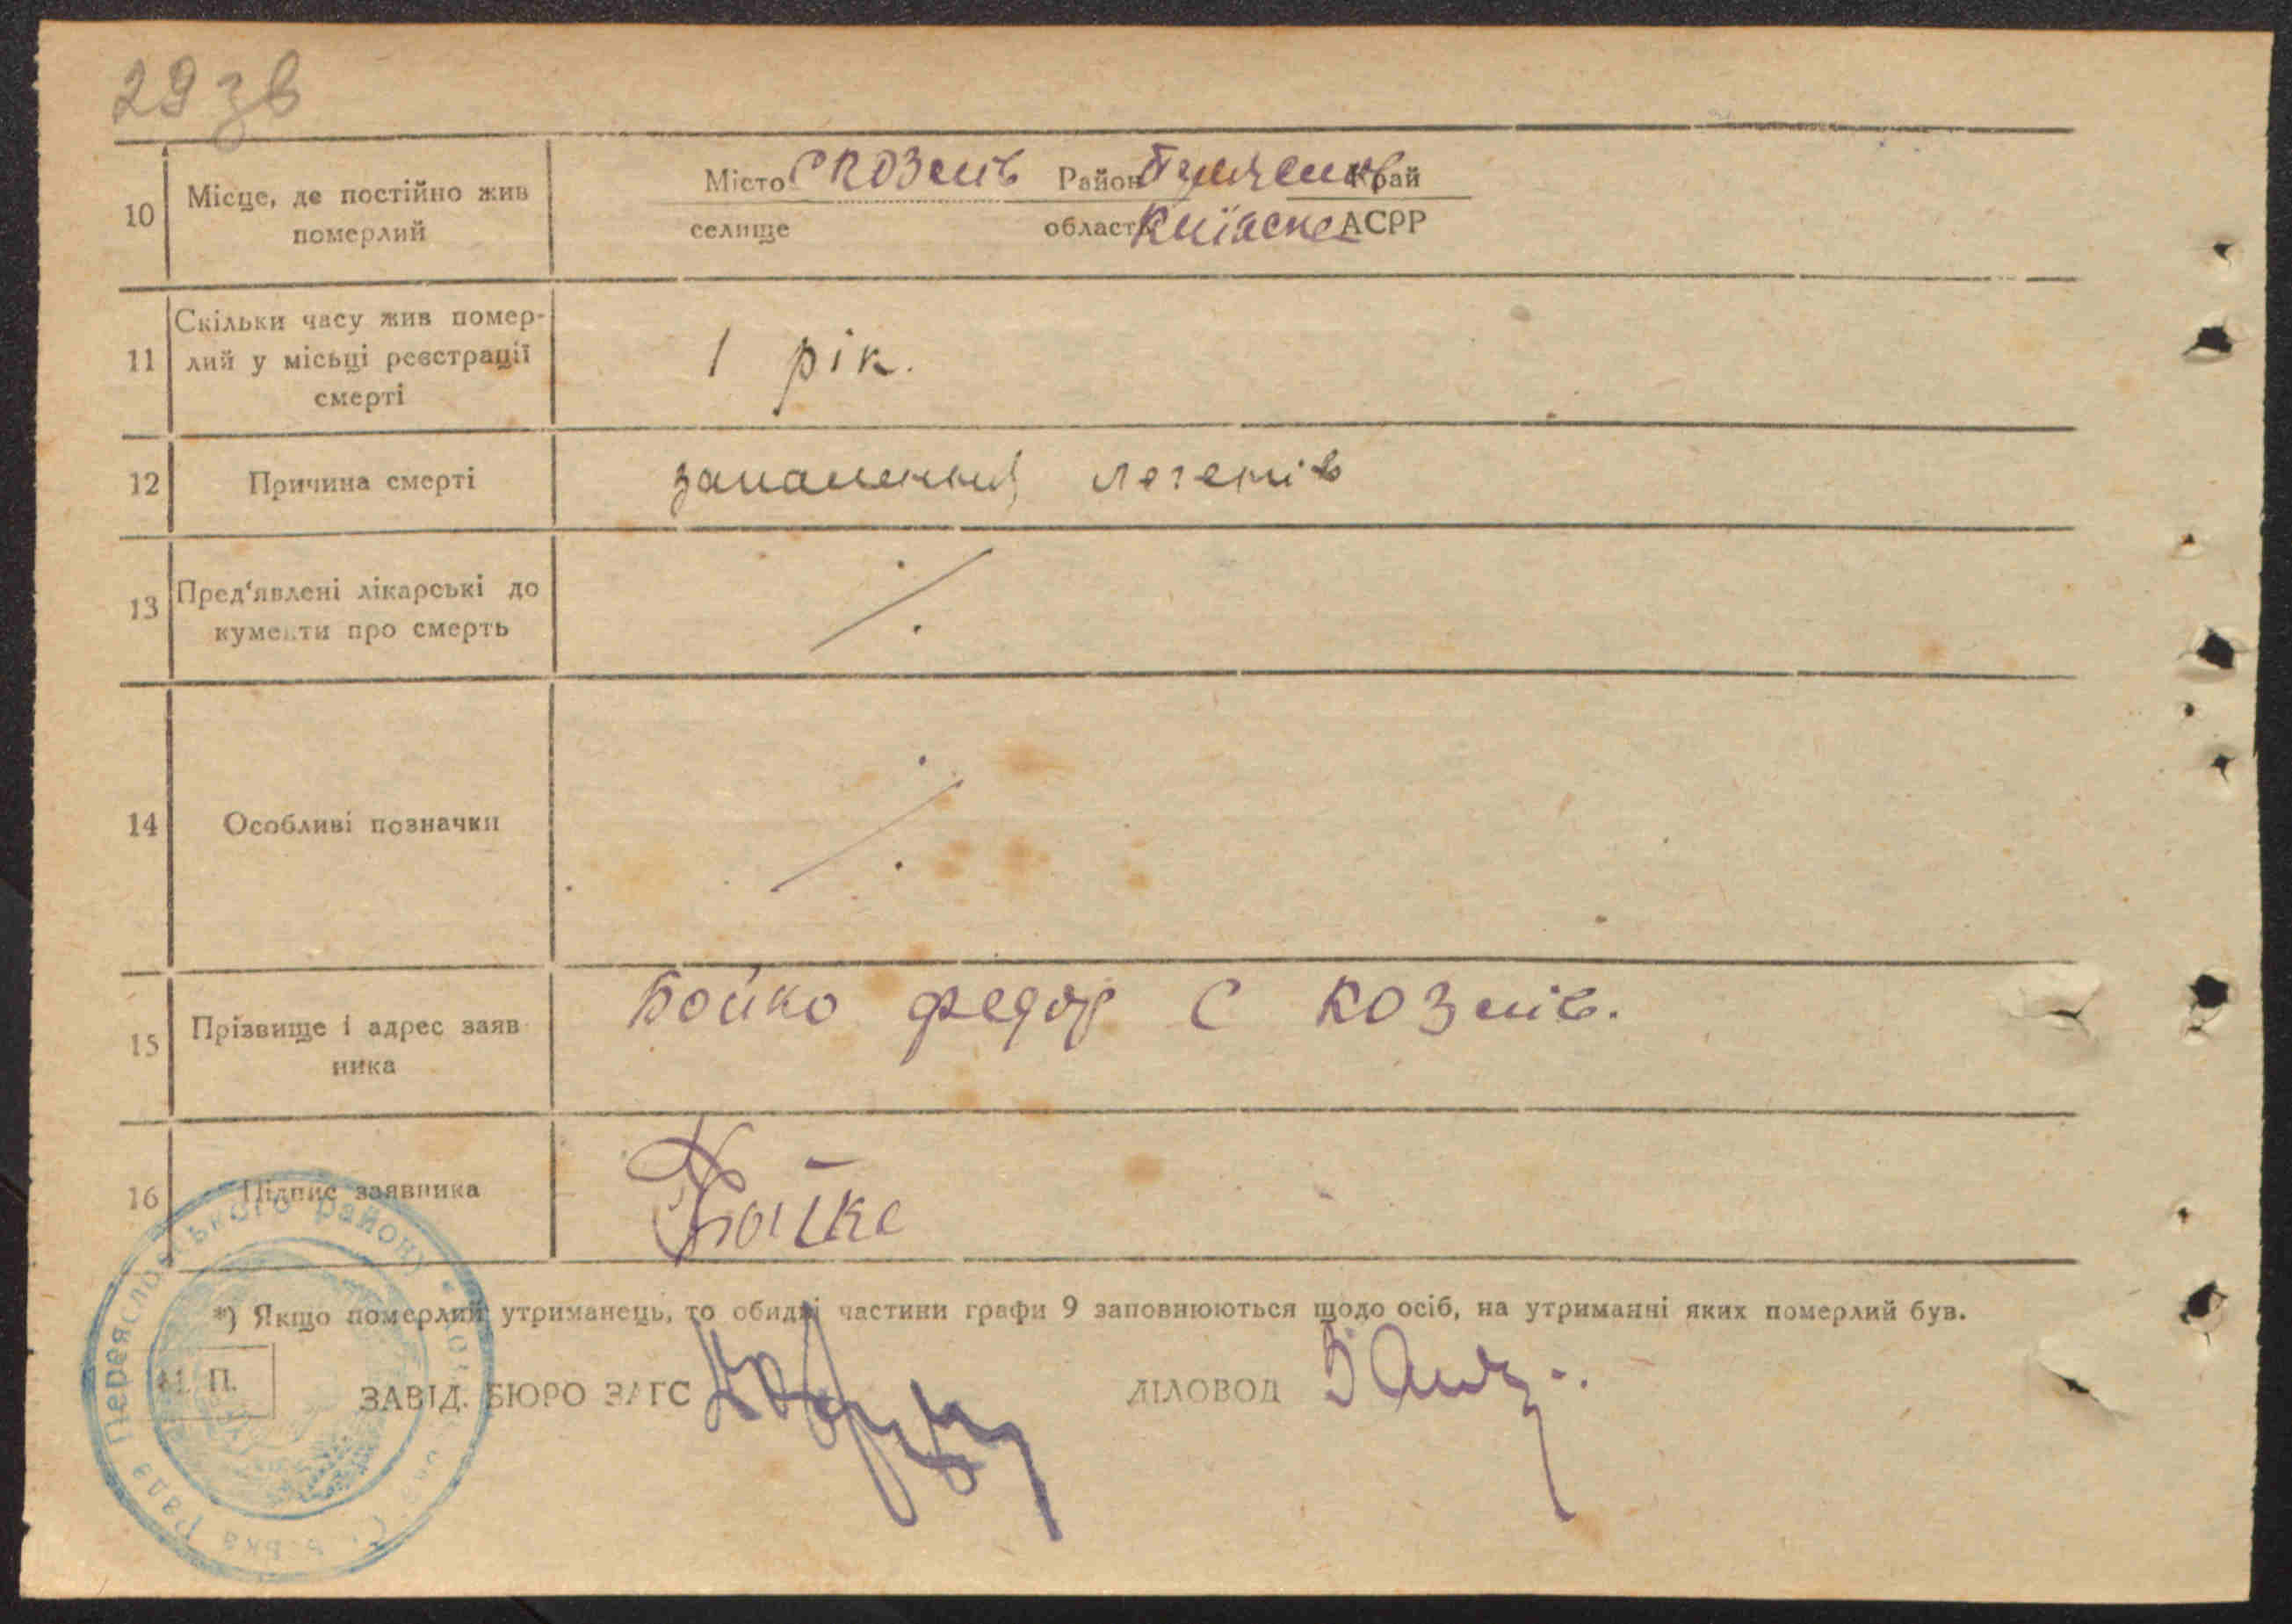 29 зв
10 Місце, де постійно жив померлий
Місто С Козлів Район Край
селище область Київска АСРР
11 Скільки часу жив помер-
лий у місьці реєстрації
смерті
1 рік.
12 Причина смерті
запалення легенів
13 Пред'явлені лікарські до
кументи про смерть
14 Особливі позначки
15 Прізвище і адрес заяв
ника
Бойко федор С Козлів.
16 Підпис заявника
Бойко
*) Якщо померлий утриманець, то обидві частини графи 9 заповнюються щодо осіб, на утриманні яких померлий був.
М. П.
ЗАВІД. БЮРО ЗАГС
ДІЛОВОД
Рада Переяславського району